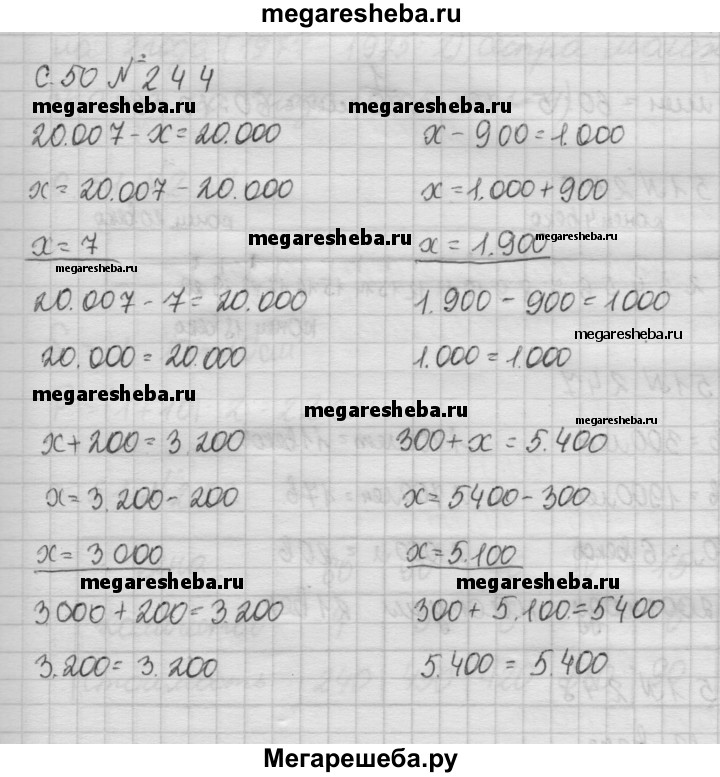 megaresheba.ru
С. 50 № 244
megaresheba.ru megaresheba.ru
20.007 - x = 20.000
x = 20.007 - 20.000
x = 7
megaresheba.ru
20.007 - 7 = 20.000
20.000 = 20.000
x - 900 = 1.000
x = 1.000 + 900
megaresheba.ru
x = 1.900
1.900 - 900 = 1000
megaresheba.ru
1.000 = 1.000
megaresheba.ru megaresheba.ru
x + 200 = 3.200
x = 3.200 - 200
x = 3 000
megaresheba.ru
3 000 + 200 = 3.200
3.200 = 3.200
megaresheba.ru
300 + x = 5.400
x = 5400 - 300
x = 5.100
megaresheba.ru
300 + 5.100 = 5400
5.400 = 5.400
Мегарешеба.ру